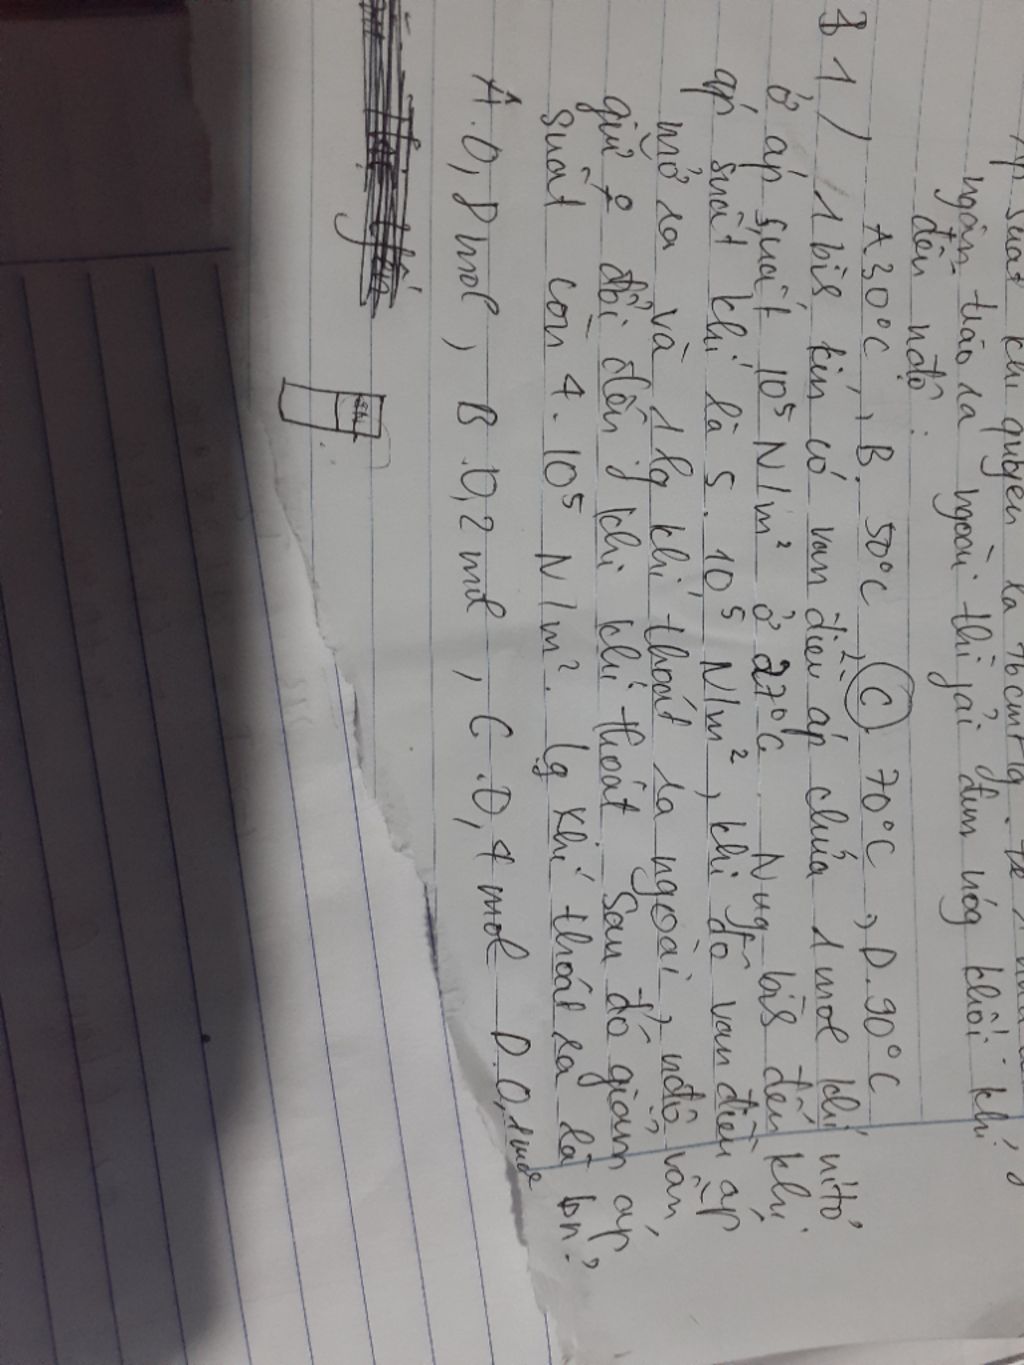 suất khí quyển là 76cmHg.
ngăn trào ra ngoài thì fải đun nóg khối khí
đến nđộ:
A 30°C, B. 50°C, C 70°C, D. 90°C
B1/ 1 bìh kín có van điều áp chứa 1 mol khí nitơ
ở áp suất 10⁵ N/m² ở 27°C Nug bìh đến khi
áp suất khí là 5. 10⁵ N/m², khi đó van điều áp
mở ra và 1 lg khí thoát ra ngoài, nđộ vẫn
giữ o đổi đến khi khí thoát Sau đó giảm áp
suất còn 4. 10⁵ N/m². lg khí thoát ra là bn?
A. 0,8 mol, B. 0,2 mol, C. 0,4 mol D. 0,1 mol